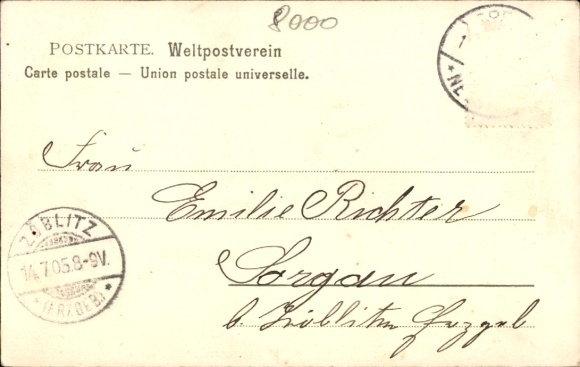 8000
POSTKARTE. Weltpostverein
Carte postale — Union postale universelle.
Frau
Emilie Richter
Sorgau
b. Zöblitz Erzgeb
ZÖBLITZ
14.7.05.8-9V.
* (ERZGEB.) *